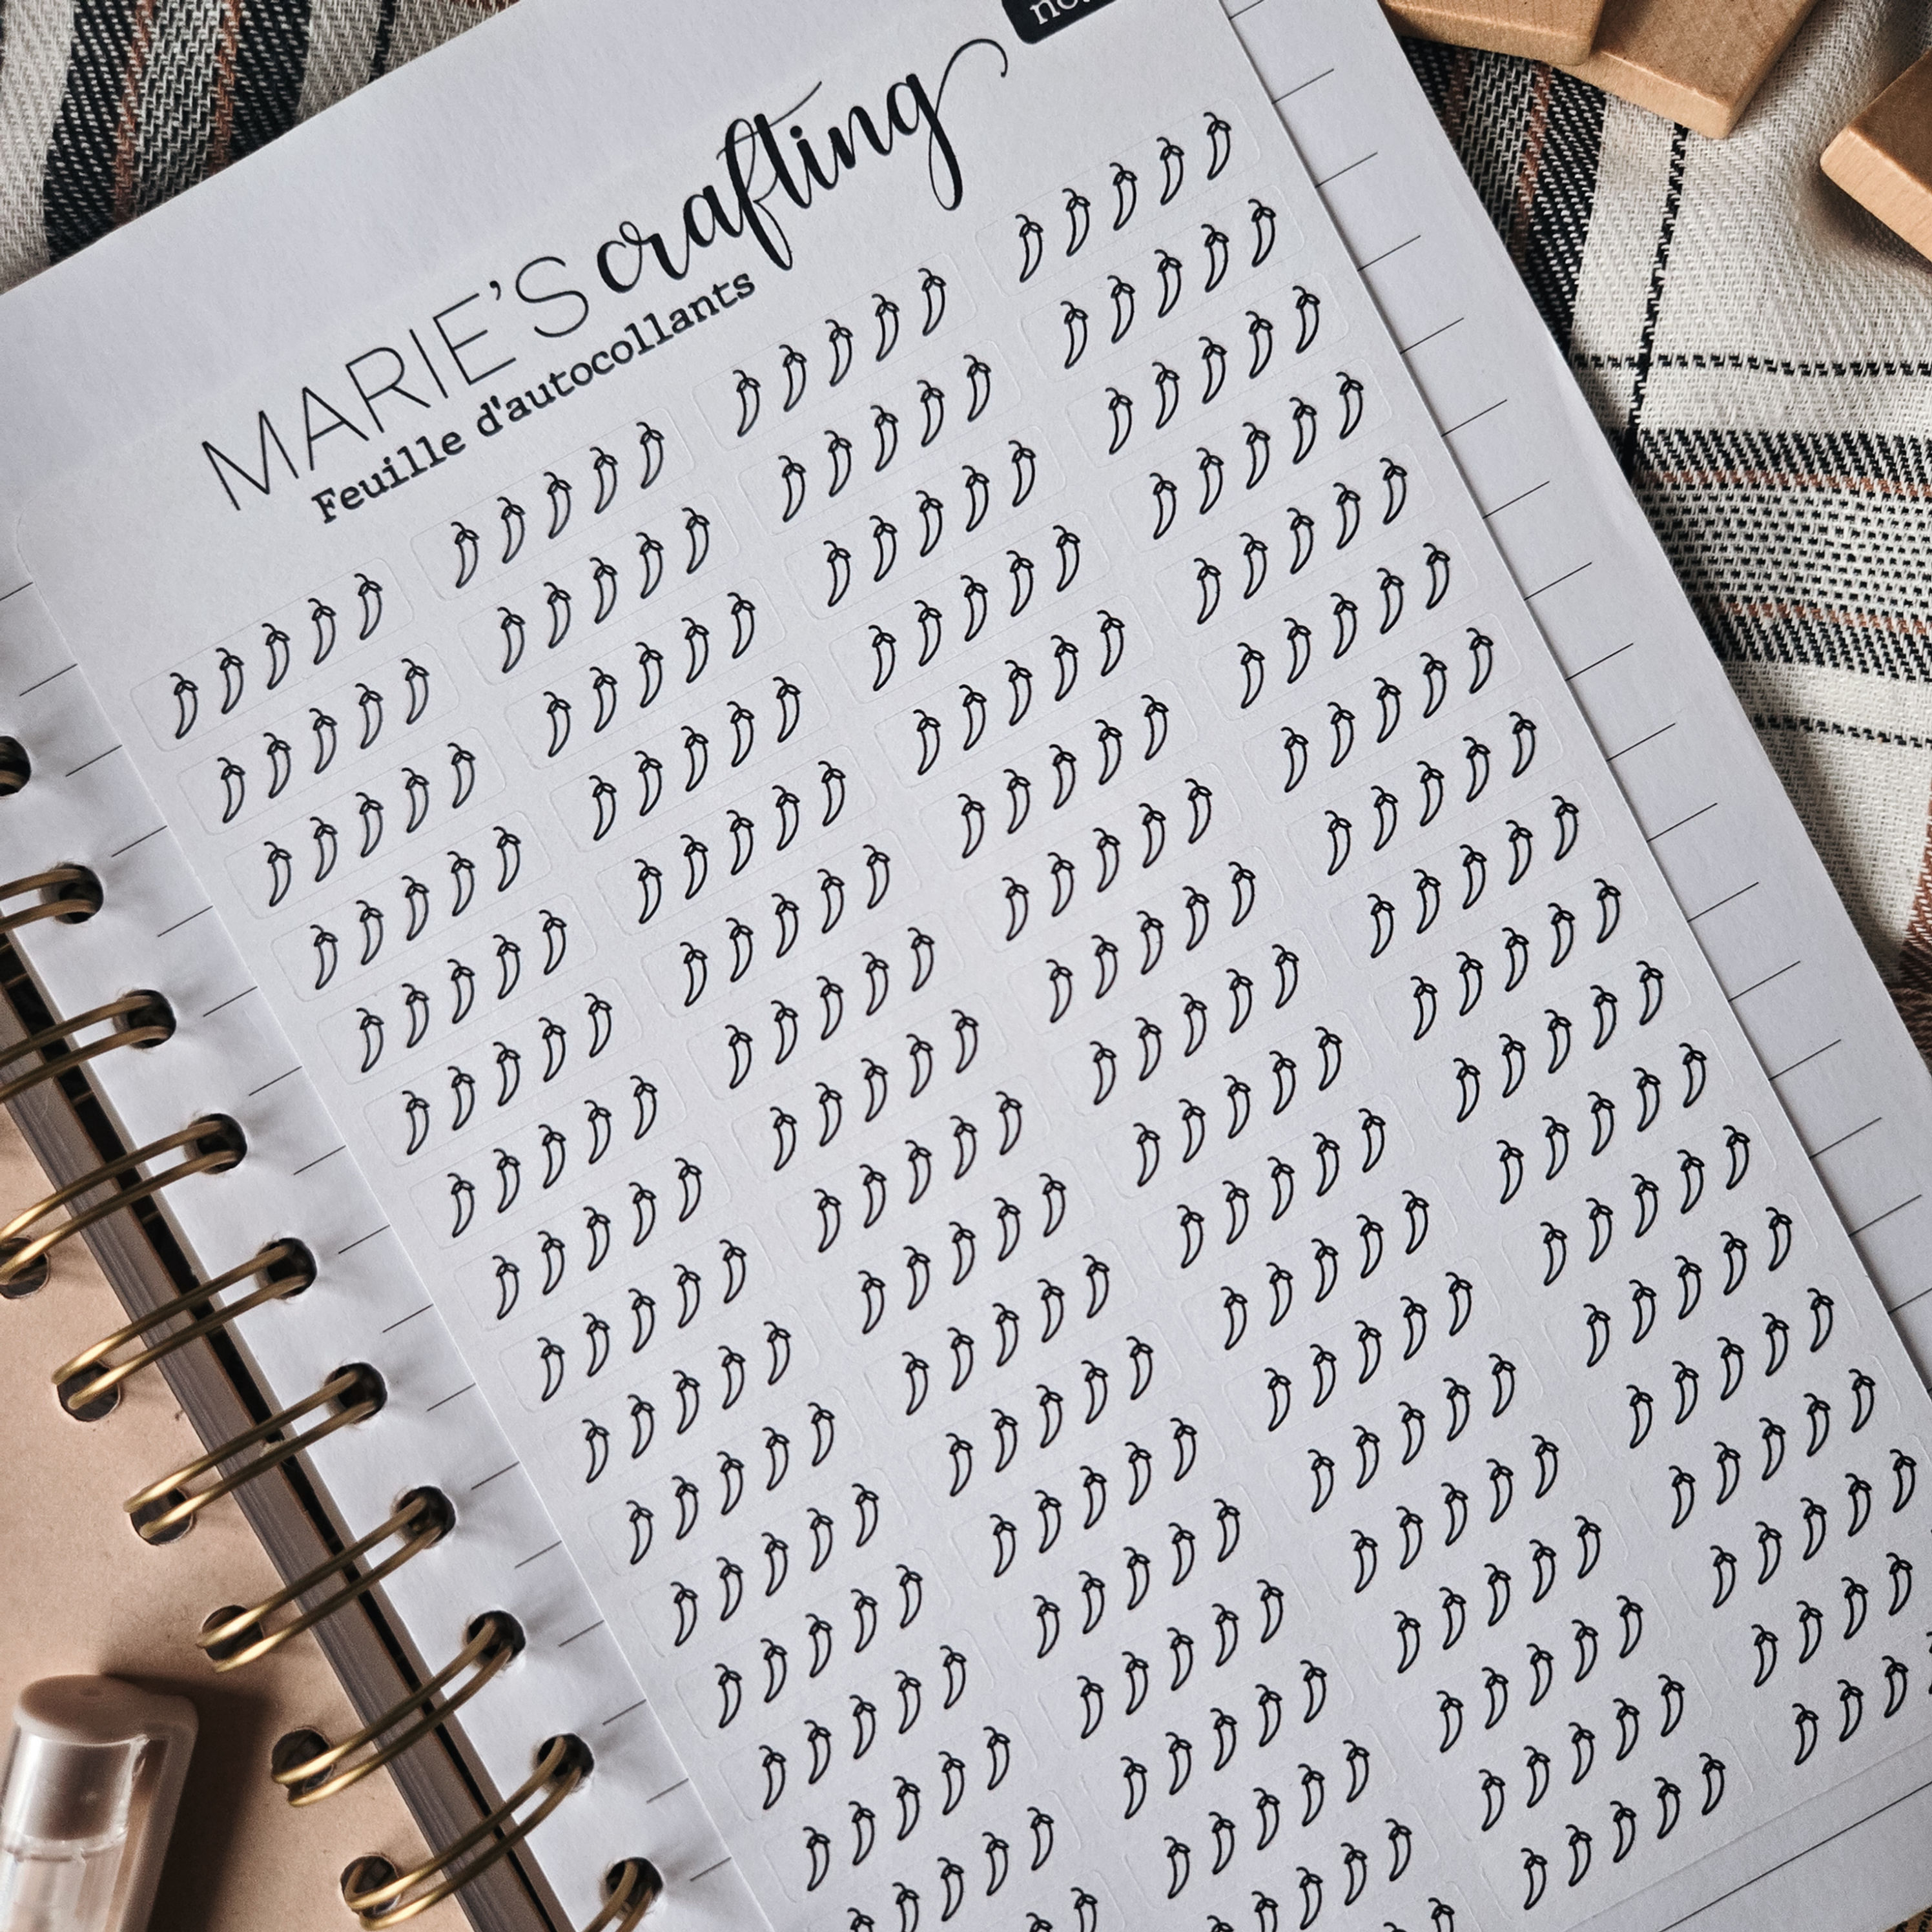 MARIE'S crafting
Feuille d'autocollants